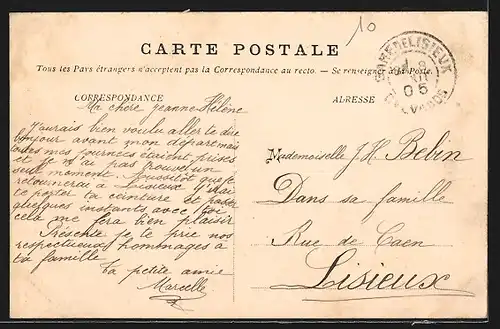 10
CARTE POSTALE
Tous les Pays étrangers n'acceptent pas la Correspondance au recto. — Se renseigner à la Poste.
CORRESPONDANCE
ADRESSE
GARE DE LISIEUX
05
CALVADOS
Ma chère Jeanne-Hélène
J'aurais bien voulu aller te dire
bonjour avant mon départ mais
toutes mes journées étaient prises
et je n'ai pas trouvé un
seul moment. Aussitôt que je
retournerai à Lisieux j'irai
te porter ta ceinture et passer
quelques instants avec toi
cela me fera bien plaisir
Présente je te prie nos
respectueux hommages à
ta famille
Ta petite amie
Marcelle
Mademoiselle J H Belin
Dans sa famille
Rue de Caen
Lisieux